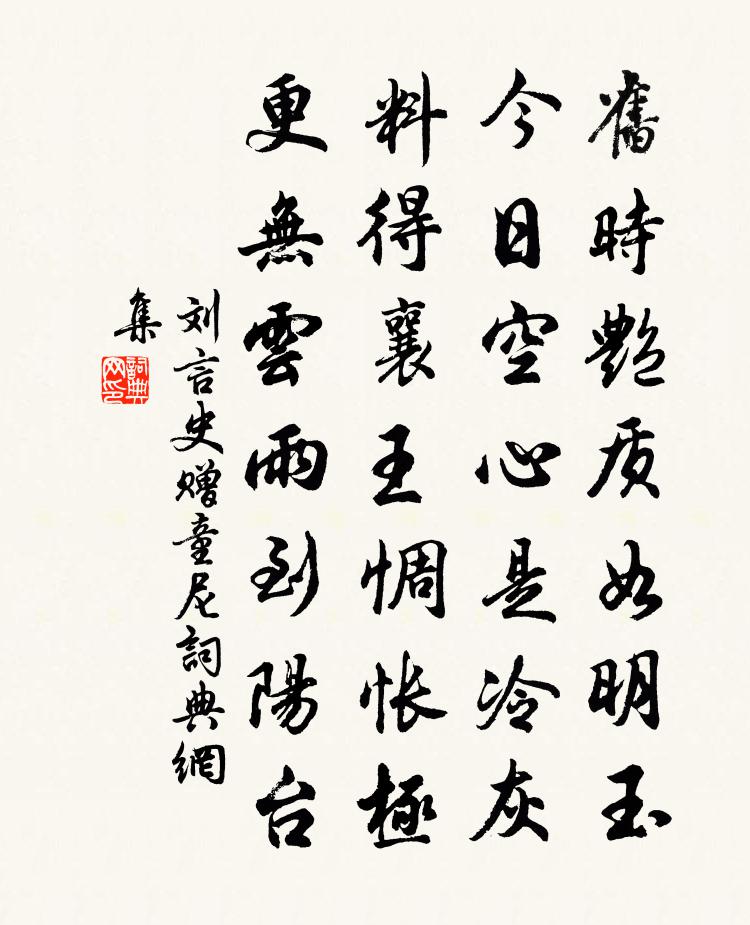 舊時艷质如明玉
今日空心是冷灰
料得襄王惆怅極
更無雲雨到陽台
刘言史赠童尼詞典網
集
詞典
网印